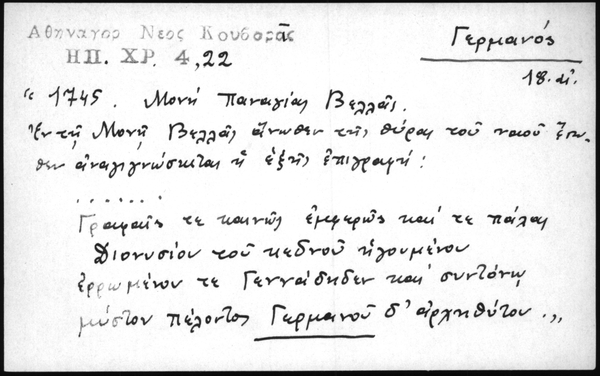 Αθηναγορ Νεος Κουβαρᾶς
Γερμανός
ΗΠ. ΧΡ. 4, 22
18. αἰ.
"1745. Μονή Παναγίας Βελλᾶς.
Ἐν τῇ Μονῇ Βελλᾶς ἄνωθεν τῆς θύρας τοῦ ναοῦ ἔσω-
θεν ἀναγιγνώσκεται ἡ ἑξῆς ἐπιγραφή:
.......
Γραφαῖς τε καινῶς ἐμφερῶς καί τε πάλαι
Διονυσίου τοῦ κεδνοῦ ἡγουμένου
ἐρρωμένου τε Γεννάδηθεν καί συντόνω
μύστου πέλοντος Γερμανοῦ δ' ἀρχηθύτου."